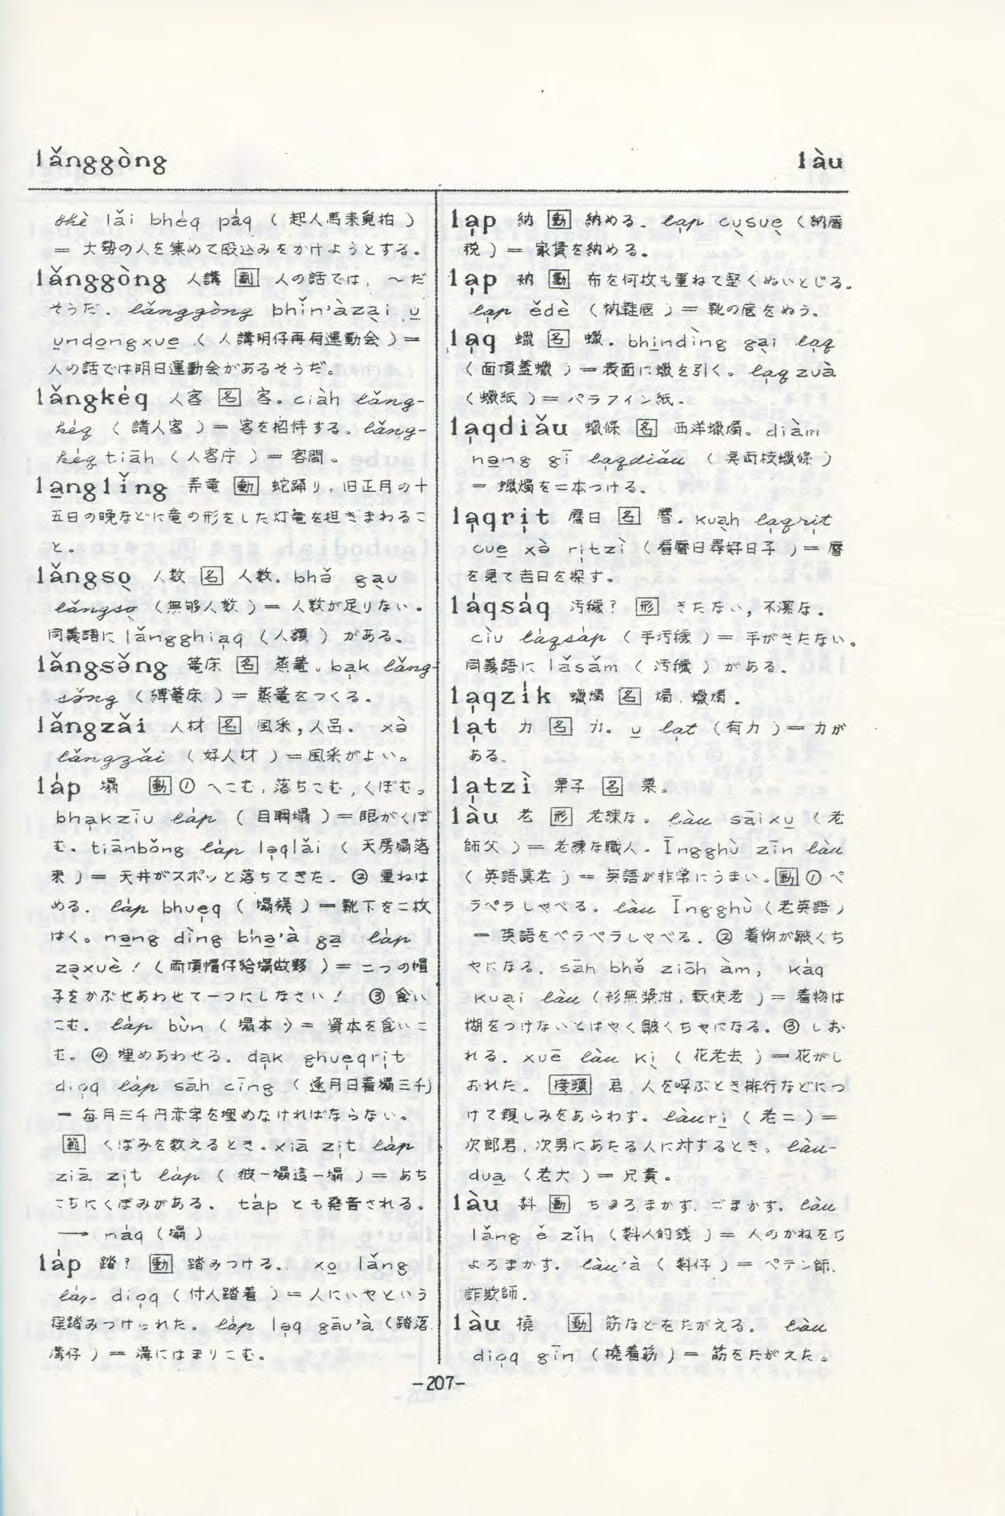 lǎnggòng
làu
thè lǎi bhéq páq （ 起人馬来 拍 ）
＝ 大勢の人を集めて殴込みをかけようとする。
lǎnggòng 人講 副 人の話では，～だ
そうだ．lǎnggòng bhîn'àzại ụ
ụndọngxuẹ （ 人講明仔再有運動会 ）＝
人の話では明日運動会があるそうだ。
lǎngkéq 人客 名 客．ciàh lǎng-
kéq （ 請人客 ）＝ 客を招待する．lǎng-
kéq tiāh （ 人客庁 ）＝ 客間．
lạnglǐng 弄竜 動 蛇踊り．旧正月の十
五日の晩などに竜の形をした灯竜を担ぎまわるこ
と．
lǎngsọ 人数 名 人数．bhǒ gạu
lǎngsọ （ 無够人数 ）＝ 人数が足りない．
同義語に lǎngghiạq （ 人額 ） がある．
lǎngsǒng 篭床 名 蒸篭．bạk lǎng-
sǒng （ 縛篭床 ）＝ 蒸篭をつくる．
lǎngzǎi 人材 名 風采，人品． xò
lǎngzǎi （ 好人材 ）＝風采がよい。
láp 塌 動 ① へこむ，落ちこむ，くぼむ。
bhạkzīu láp （ 目睭塌 ）＝眼がくぼ
む．tiānbǒng láp lọqlǎi （ 天房塌落
来 ）＝ 天井がスポッと落ちてきた．② 重ねは
める．láp bhuẹq （ 塌襪 ）＝靴下を二枚
はく。nạng dìng bhọ'à gạ láp
zọxuè！（ 両頂帽仔給塌做夥 ）＝ 二つの帽
子をかぶせあわせて一つにしなさい！ ③ 食い
こむ．láp bùn （ 塌本 ）＝ 資本を食いこ
む。④ 埋めあわせる．dạk ghuẹqrịt
diọq láp sāh cīng （ 逐月日着塌三千）
＝ 毎月三千円赤字を埋めなければならない。
範 くぼみを数えるとき．xiā zịt láp
ziā zịt láp （ 彼一塌這一塌 ）＝ あち
こちにくぼみがある． táp とも発音される．
⟶ náq （ 塌 ）
láp 踏？ 動 踏みつける． xọ lǎng
láp diọq （ 付人踏着 ）＝人にいやという
程踏みつけられた．láp lọq gāu'à （踏落
溝仔 ）＝ 溝にはまりこむ。
lạp 納 動 納める．lạp cụsuẹ （ 納厝
税 ）＝ 家賃を納める。
lạp 衲 動 布を何枚も重ねて堅くぬいとじる．
lạp ědè （ 衲鞋底 ）＝ 靴の底をぬう。
lạq 蠟 名 蠟．bhịndìng gại lạq
（ 面頂蓋蠟 ）＝表面に蠟を引く。lạq zuà
（ 蠟紙 ）＝ パラフィン紙．
lạqdiǎu 蠟條 名 西洋蠟燭。diàm
nạng gī lạqdiǎu （ 両枝蠟條 ）
＝ 蠟燭を二本つける．
lạqrịt 暦日 名 暦．kuạh lạqrịt
cuẹ xò rịtzì （ 看暦日尋好日子 ）＝ 暦
を見て吉日を探す。
láqsáq 汚穢？ 形 きたない，不潔な．
cìu láqsáp （ 手汚穢 ）＝ 手がきたない．
同義語に lǎsǎm （ 汚穢 ） がある．
lạqzik 蠟燭 名 燭．蠟燭．
lạt 力 名 力。ụ lạt （ 有力 ）＝ 力が
ある．
lạtzì 栗子 名 栗．
làu 老 形 老練な．làu sāixụ （ 老
師父 ）＝ 老練な職人．Īngghù zīn làu
（ 英語真老 ）＝ 英語が非常にうまい．動 ① ペ
ラペラしゃべる．làu Īngghù （ 老英語 ）
＝ 英語をペラペラしゃべる．② 着物が皺くち
ゃになる．sāh bhǒ ziōh àm， kàq
kuại làu （ 衫無漿泔，較快老 ）＝ 着物は
糊をつけないとはやく皺くちゃになる．③ しお
れる．xuē làu kị （ 花老去 ）＝花がし
おれた． 接頭 君．人を呼ぶとき排行などにつ
けて親しみをあらわす．làurị （ 老二 ）＝
次郎君，次男にあたる人に対するとき．làu-
duạ （ 老大 ）＝ 兄貴．
làu 動 ちょろまかす，ごまかす．làu
lǎng ě zǐh （ 人的銭 ）＝ 人のかねをち
ょろまかす．làu'à （ 仔 ）＝ ペテン師．
詐欺師．
làu 撓 動 筋などをたがえる． làu
diọq gīn （ 撓着筋 ）＝ 筋をたがえた。
-207-